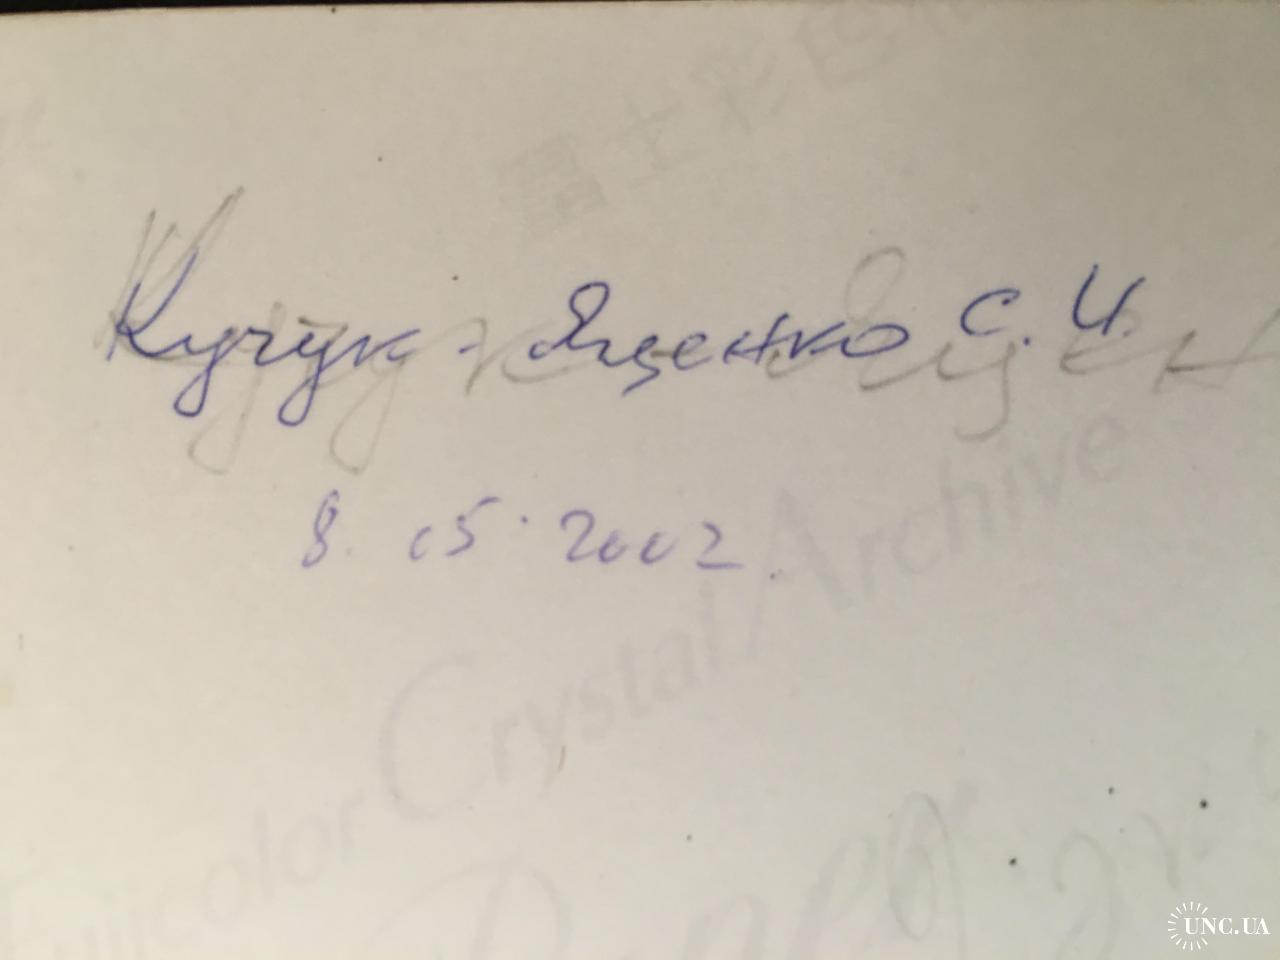 富士彩色
Кучук-Яценко С. И.
8. 05. 2002.
Fujicolor Crystal Archive
UNC.UA